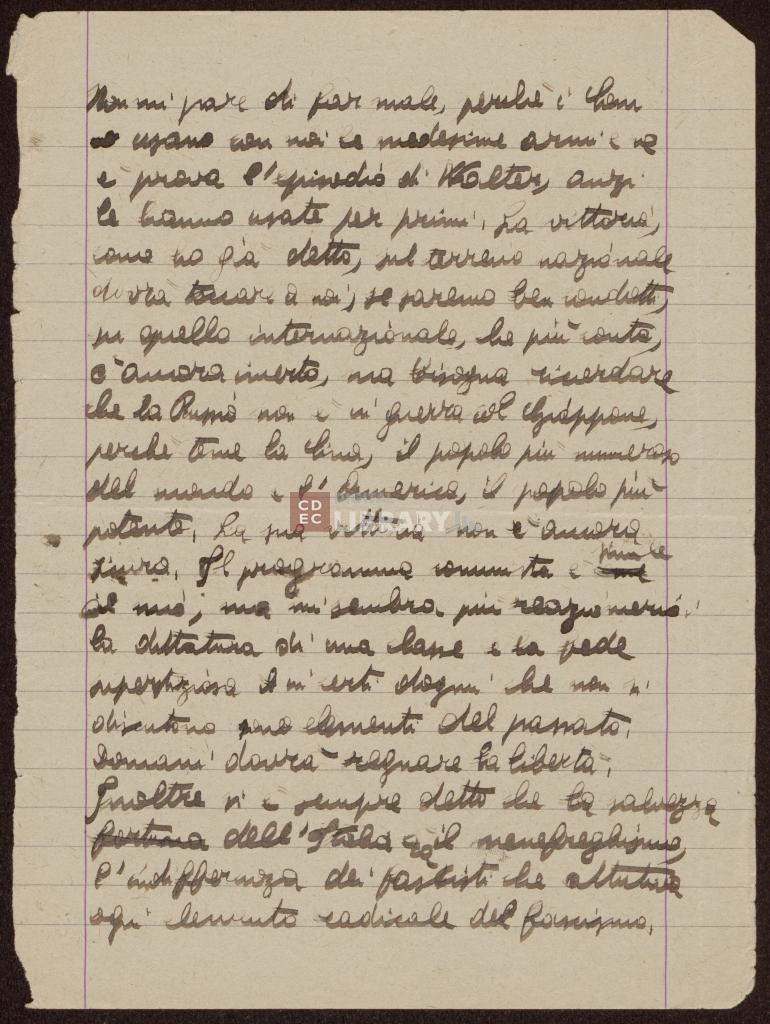 Non mi pare di far male, perché i com
usano con noi le medesime armi e ne
è prova l'episodio di Walter, anzi
le hanno usate per primi. La vittoria,
come ho già detto, sul terreno nazionale
dovrà toccare a noi, se saremo ben condotti,
su quello internazionale, che più conta,
è ancora incerto, ma bisogna ricordare
che la Russia non è in guerra col Giappone,
perché teme la Cina, il popolo più numeroso
del mondo e l'America, il popolo più
potente. La sua vittoria non è ancora
sicura. Il programma comunista è simile
al mio; ma mi sembra più reazionario:
la dittatura di una classe e la fede
superstiziosa in certi dogmi che non si
discutono sono elementi del passato.
Domani dovrà regnare la libertà.
Inoltre si è sempre detto che la salvezza
fortuna dell'Italia il menefreghismo,
l'indifferenza dei fascisti che attutiva
ogni elemento radicale del fascismo.
CDEC
LIBRARY